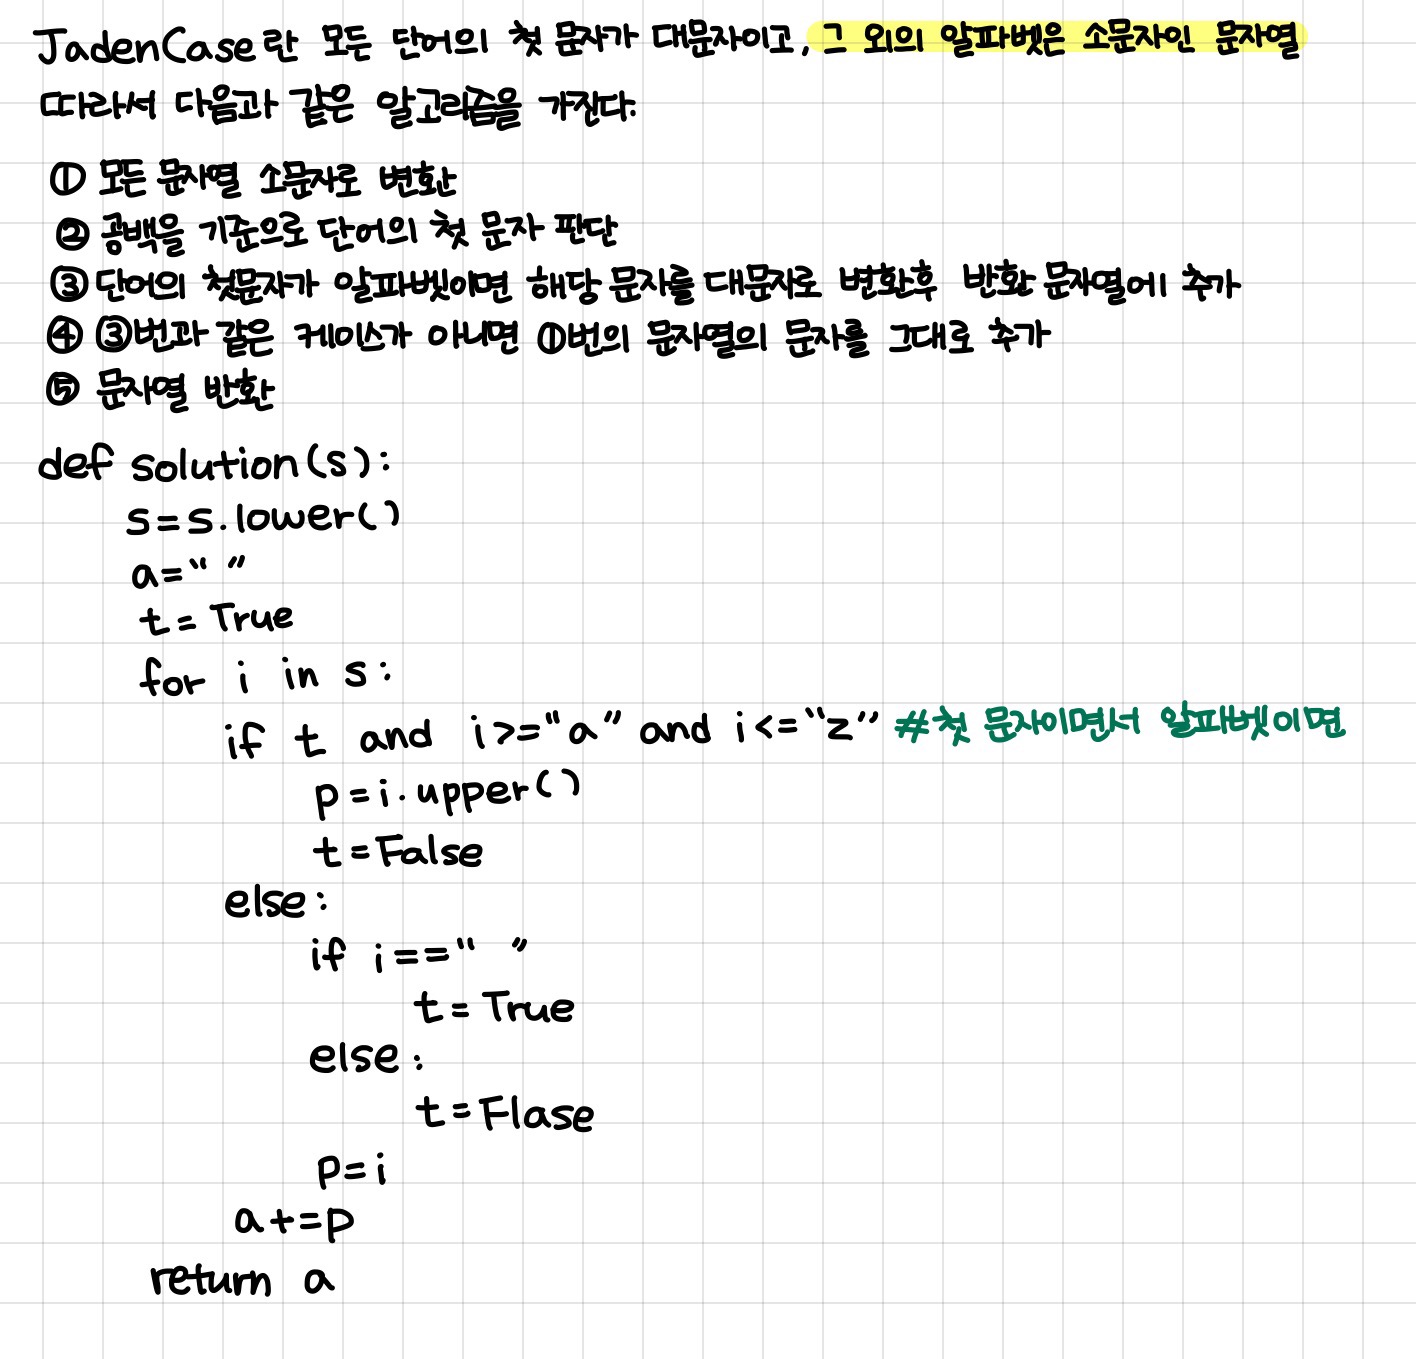 JadenCase란 모든 단어의 첫 문자가 대문자이고, 그 외의 알파벳은 소문자인 문자열
따라서 다음과 같은 알고리즘을 가진다.
① 모든 문자열 소문자로 변환
② 공백을 기준으로 단어의 첫 문자 판단
③ 단어의 첫문자가 알파벳이면 해당 문자를 대문자로 변환후 반환 문자열에 추가
④ ③번과 같은 케이스가 아니면 ①번의 문자열의 문자를 그대로 추가
⑤ 문자열 반환
def solution(s):
s=s.lower()
a=“ ”
t=True
for i in s:
if t and i>=“a” and i<=“z” #첫 문자이면서 알파벳이면
p=i.upper()
t=False
else:
if i==“ ”
t=True
else:
t=Flase
p=i
a+=p
return a